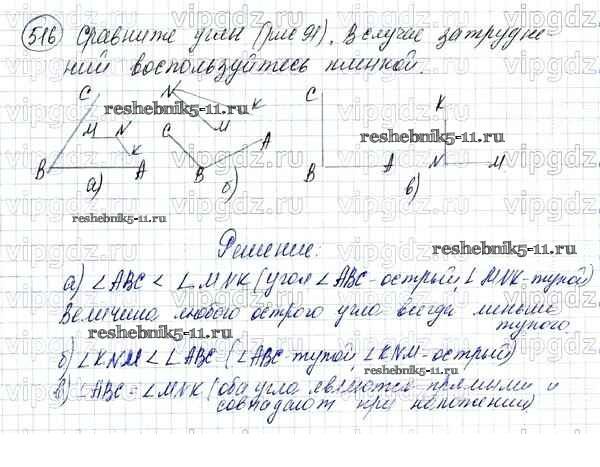 516 Сравните углы (рис 91). В случае затрудне-
ний воспользуйтесь пленкой.
C N K C K
M N M C A
K
B A B B A N M
а) б) в)
reshebnik5-11.ru
reshebnik5-11.ru
Решение:
reshebnik5-11.ru
а) ∠ABC < ∠MNK (угол ∠ABC-острый, ∠MNK-тупой)
Величина любого острого угла всегда меньше
тупого
reshebnik5-11.ru
б) ∠KNM < ∠ABC (∠ABC-тупой ∠KNM-острый)
в) ∠ABC = ∠MNK (оба угла являются прямыми и
совпадают при наложении)
vipgdz.ru